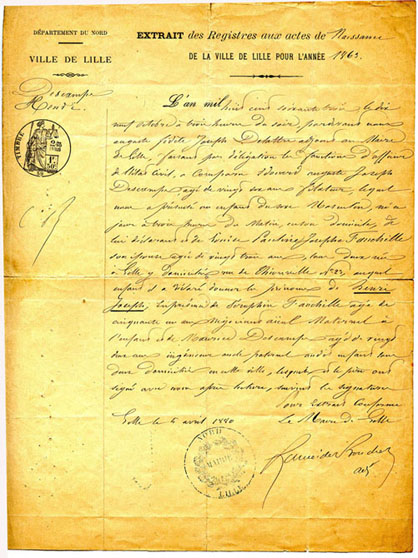 DÉPARTEMENT DU NORD
VILLE DE LILLE
EXTRAIT des Registres aux actes de Naissance
DE LA VILLE DE LILLE POUR L'ANNÉE 1863
Descamps
Henri
L'an mil huit cent soixante trois, le dix
neuf octobre à trois heures du soir, pardevant nous
auguste fidèle Joseph Delattre adjoint au Maire
de Lille, faisant par délégation les fonctions d'officier
de l'état Civil, a comparu Edouard auguste Joseph
Descamps âgé de vingt six ans filateur, lequel
nous a présenté un enfant du sexe Masculin, né à
jour à trois heures du Matin, en son domicile, de
lui déclarant et de Louise Pauline Josèphe Fauchille
son épouse âgée de vingt trois ans, tous deux nés
à Lille y domiciliés rue de Thionville N° 22, auquel
enfant il a déclaré donner les prénoms de Henri
Joseph, En présence de Séraphin Fauchille âgé de
cinquante un ans négociant aïeul Maternel à
l'enfant et de Maurice Descamps âgé de vingt
ans ingénieur oncle paternel audit enfant tous
deux domiciliés en cette ville, lesquels et le père ont
signé avec nous après lecture, suivent les signatures
Pour Extrait Conforme
Lille le 6 avril 1880
Le Maire de Lille
TIMBRE
NORD
MAIRIE